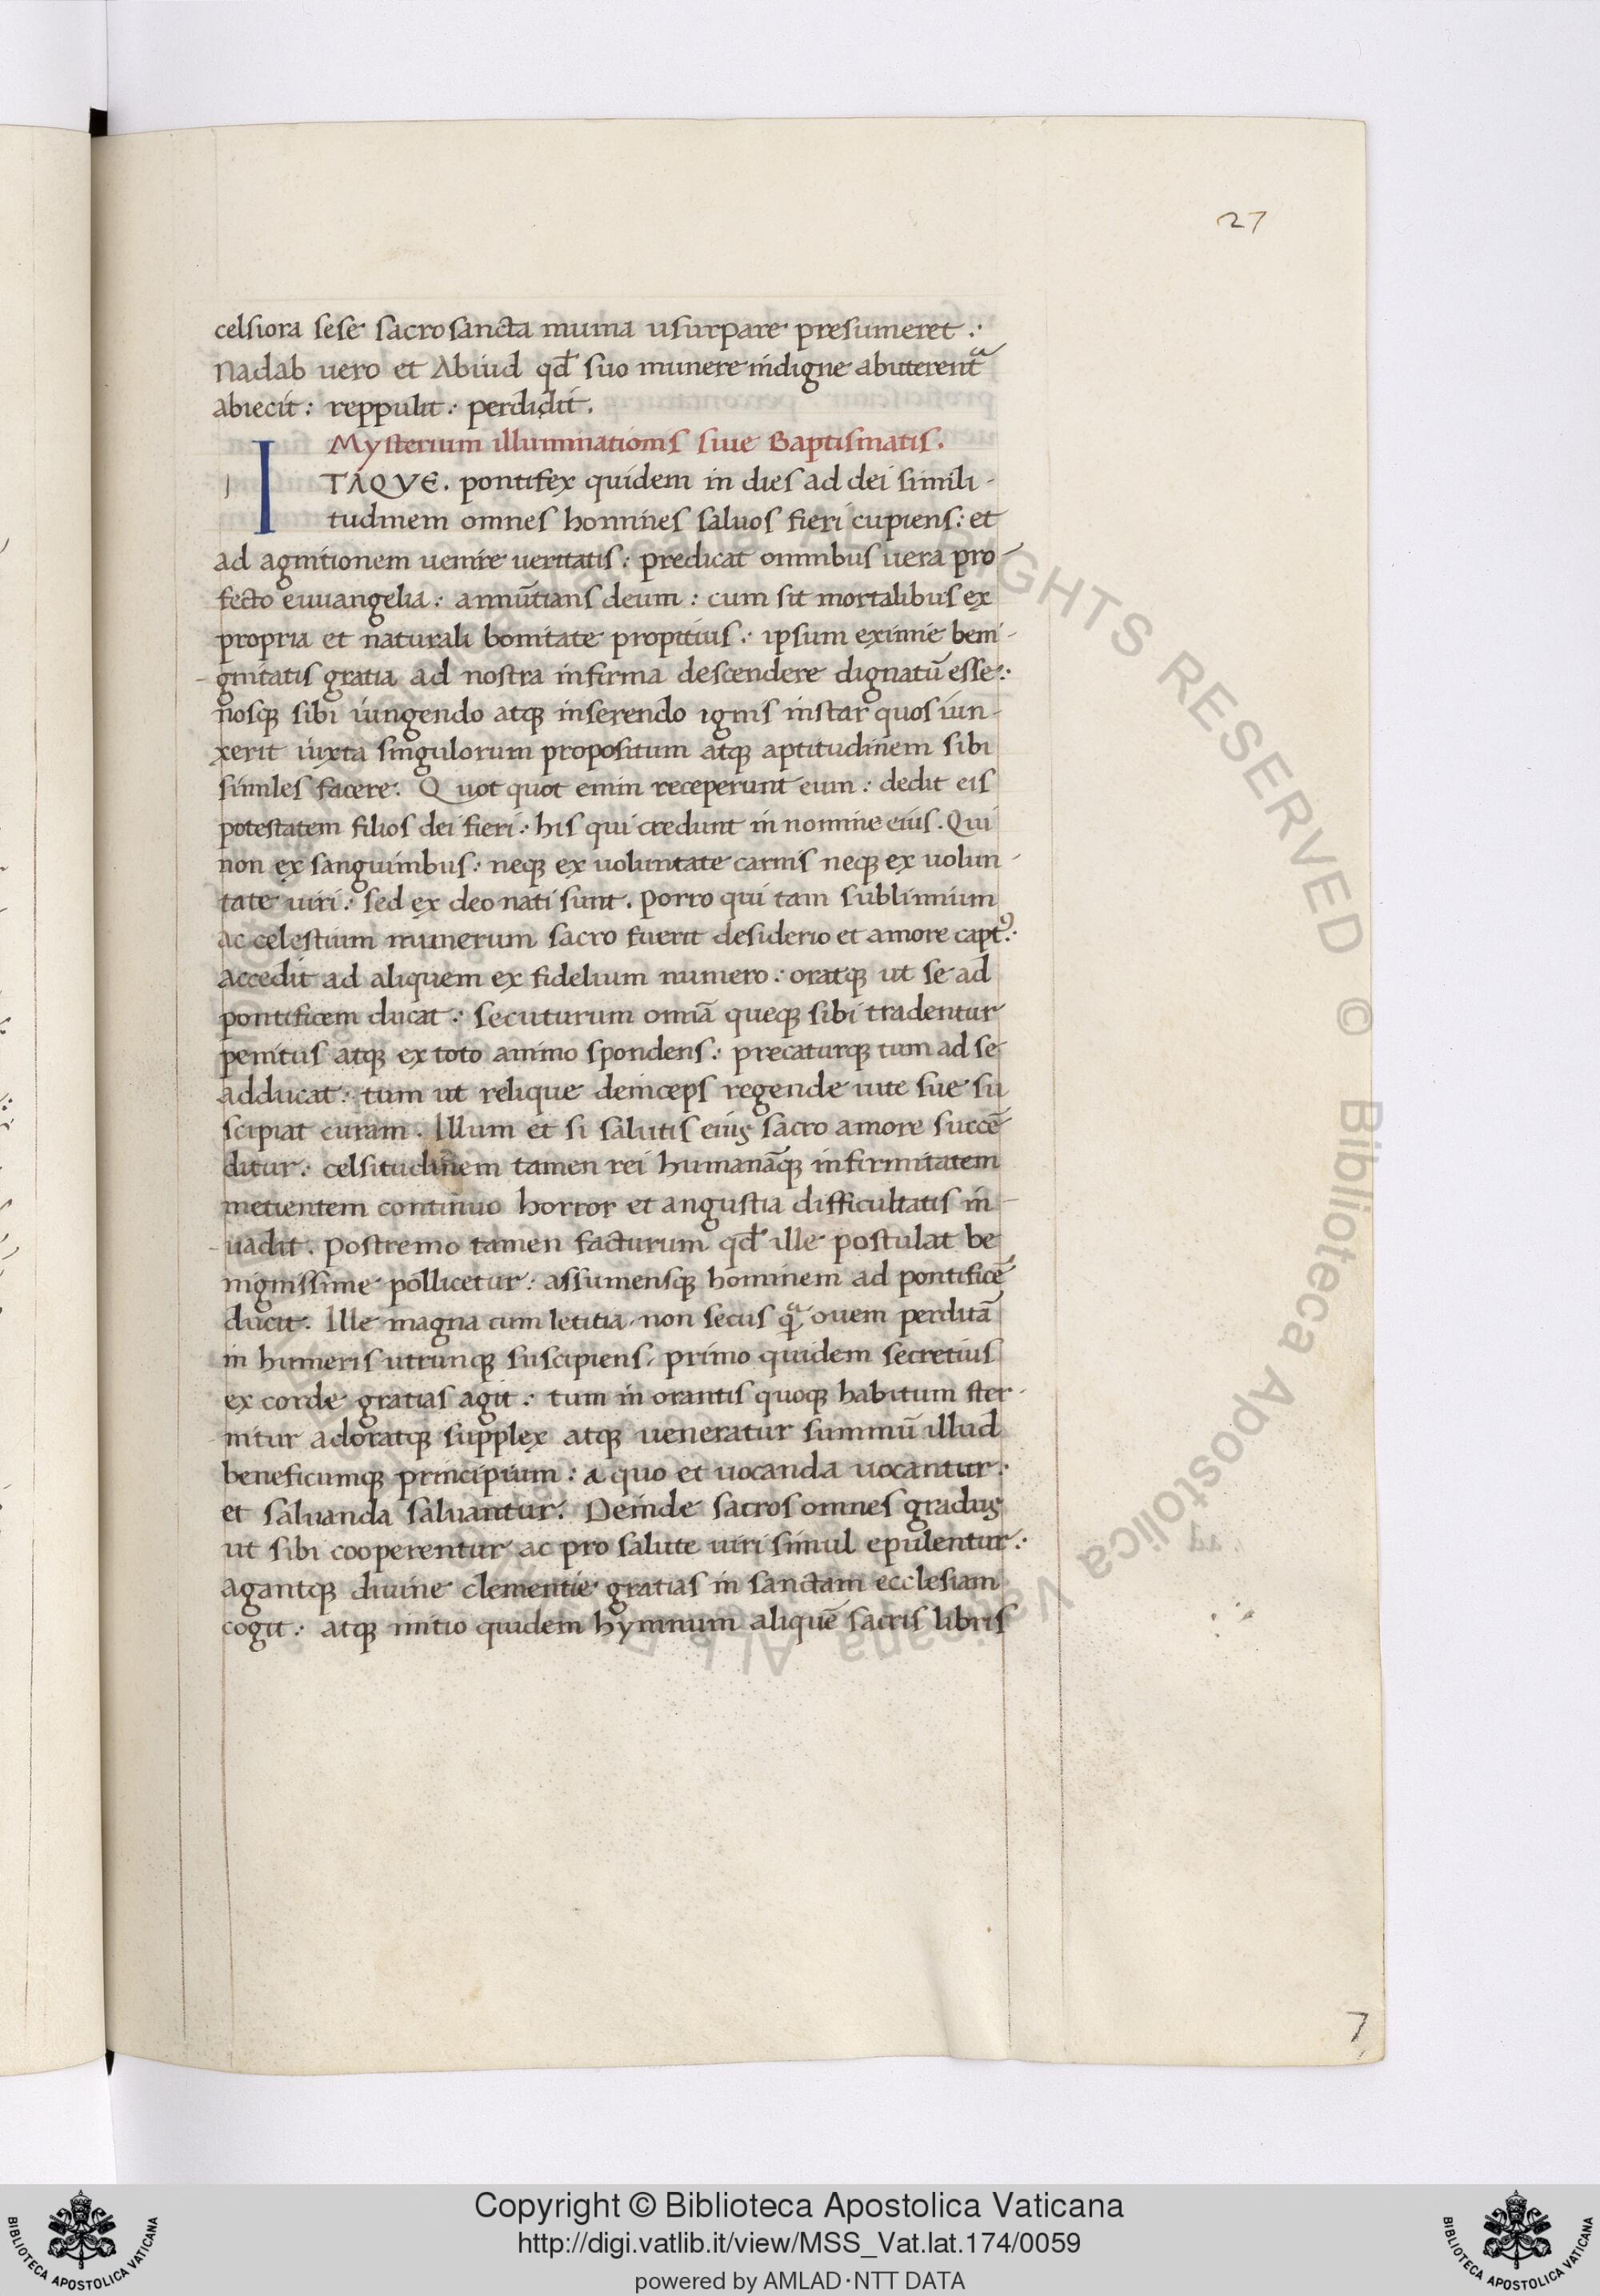 27
celsiora sese sacrosancta munia usurpare presumeret :·
Nadab uero et Abiud qđ suo munere indigne abuterent᷑
abiecit : reppulit : perdidit.
Mysterium illuminationis siue Baptismatis.
I TAQVE. pontifex quidem in dies ad dei simili-
tudinem omnes homines saluos fieri cupiens : et
ad agnitionem uenire ueritatis : predicat omnibus uera pro-
fecto euuangelia : annūtians deum : cum sit mortalibus ex
propria et naturali bonitate propitius : ipsum eximie beni-
gnitatis gratia ad nostra infirma descendere dignatū esse :·
nosqꝫ sibi iungendo atqꝫ inserendo ignis instar quos iun-
xerit iuxta singulorum propositum atqꝫ aptitudinem sibi
similes facere. Quot quot enim receperunt eum : dedit eis
potestatem filios dei fieri : his qui credunt in nomine eius. Qui
non ex sanguinibus : neqꝫ ex uoluntate carnis neqꝫ ex uolun-
tate uiri : sed ex deo nati sunt. Porro qui tam sublimium
ac celestium munerum sacro fuerit desiderio et amore captꝰ :·
accedit ad aliquem ex fidelium numero : oratqꝫ ut se ad
pontificem ducat : secuturum omīa queqꝫ sibi tradentur
penitus atqꝫ ex toto animo spondens : precaturqꝫ tum ad se
adducat : tum ut relique deinceps regende uite sue su
scipiat curam. Illum et si salutis eius sacro amore succē
ditur : celsitudinem tamen rei humanāqꝫ infirmitatem
metientem continuo horror et angustia difficultatis in-
uadit. Postremo tamen facturum qđ ille postulat be
nignissime pollicetur : assumensqꝫ hominem ad pontificē
ducit. Ille magna cum letitia, non secus qᷓ ouem perditā
in humeris utrunqꝫ suscipiens, primo quidem secretius
ex corde gratias agit : tum in orantis quoqꝫ habitum ster-
nitur adoratqꝫ supplex atqꝫ ueneratur summū illud
beneficumqꝫ principium : a quo et uocanda uocantur :·
et saluanda saluantur. Deinde sacros omnes gradus
ut sibi cooperentur ac pro salute uiri simul epulentur :·
agantqꝫ diuine clementie gratias in sanctam ecclesiam
cogit : atqꝫ initio quidem hymnum aliquē sacris libris
7
Copyright © Biblioteca Apostolica Vaticana
http://digi.vatlib.it/view/MSS_Vat.lat.174/0059
powered by AMLAD·NTT DATA